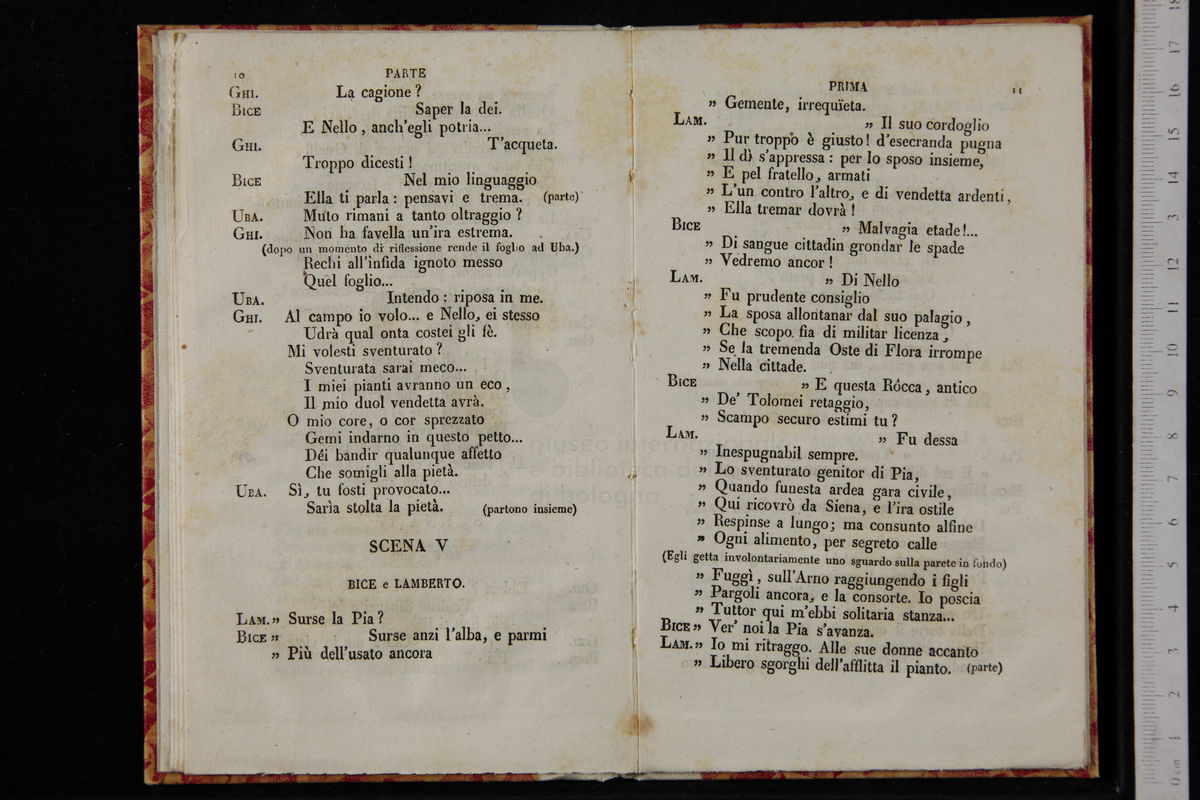 10 PARTE
GHI. La cagione ?
BICE Saper la dei.
E Nello , anch'egli potria...
GHI. T'acqueta.
Troppo dicesti !
BICE Nel mio linguaggio
Ella ti parla : pensavi e trema. (parte)
UBA. Muto rimani a tanto oltraggio ?
GHI. Non ha favella un'ira estrema.
(dopo un momento di riflessione rende il foglio ad Uba.)
Rechi all'infida ignoto messo
Quel foglio...
UBA. Intendo : riposa in me.
GHI. Al campo io volo... e Nello, ei stesso
Udrà qual onta costei gli fè.
Mi volesti sventurato ?
Sventurata sarai meco...
I miei pianti avranno un eco ,
Il mio duol vendetta avrà.
O mio core, o cor sprezzato
Gemi indarno in questo petto...
Déi bandir qualunque affetto
Che somigli alla pietà.
UBA. Sì, tu fosti provocato...
Sarìa stolta la pietà. (partono insieme)
SCENA V
BICE e LAMBERTO.
LAM. » Surse la Pia ?
BICE » Surse anzi l'alba, e parmi
» Più dell'usato ancora
PRIMA 11
» Gemente, irrequïeta.
LAM. » Il suo cordoglio
» Pur troppo è giusto! d'esecranda pugna
» Il dì s'appressa : per lo sposo insieme,
» E pel fratello, armati
» L'un contro l'altro, e di vendetta ardenti,
» Ella tremar dovrà !
BICE » Malvagia etade!...
» Di sangue cittadin grondar le spade
» Vedremo ancor !
LAM. » Di Nello
» Fu prudente consiglio
» La sposa allontanar dal suo palagio ,
» Che scopo fia di militar licenza ,
» Se la tremenda Oste di Flora irrompe
» Nella cittade.
BICE » E questa Rócca, antico
» De' Tolomei retaggio,
» Scampo securo estimi tu ?
LAM. » Fu dessa
» Inespugnabil sempre.
» Lo sventurato genitor di Pia,
» Quando funesta ardea gara civile,
» Qui ricovrò da Siena, e l'ira ostile
» Respinse a lungo; ma consunto alfine
» Ogni alimento, per segreto calle
(Egli getta involontariamente uno sguardo sulla parete in fondo)
» Fuggì , sull'Arno raggiungendo i figli
» Pargoli ancora, e la consorte. Io poscia
» Tuttor qui m'ebbi solitaria stanza...
BICE » Ver' noi la Pia s'avanza.
LAM. » Io mi ritraggo. Alle sue donne accanto
» Libero sgorghi dell'afflitta il pianto. (parte)
museo internazionale
e biblioteca della
di bologna